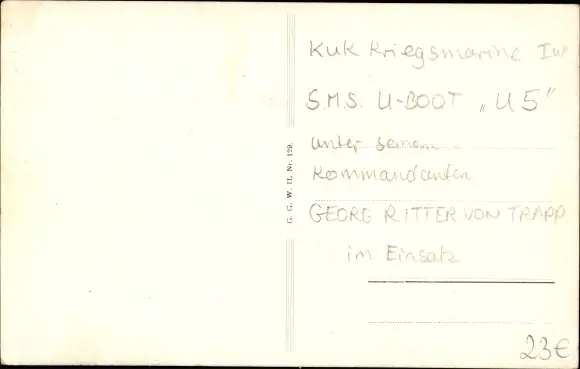 KuK Kriegsmarine IWK
S.M.S. U-BOOT „U5"
unter seinem
Kommandanten
GEORG RITTER VON TRAPP
im Einsatz
G. G. W. II. Nr. 129.
23€